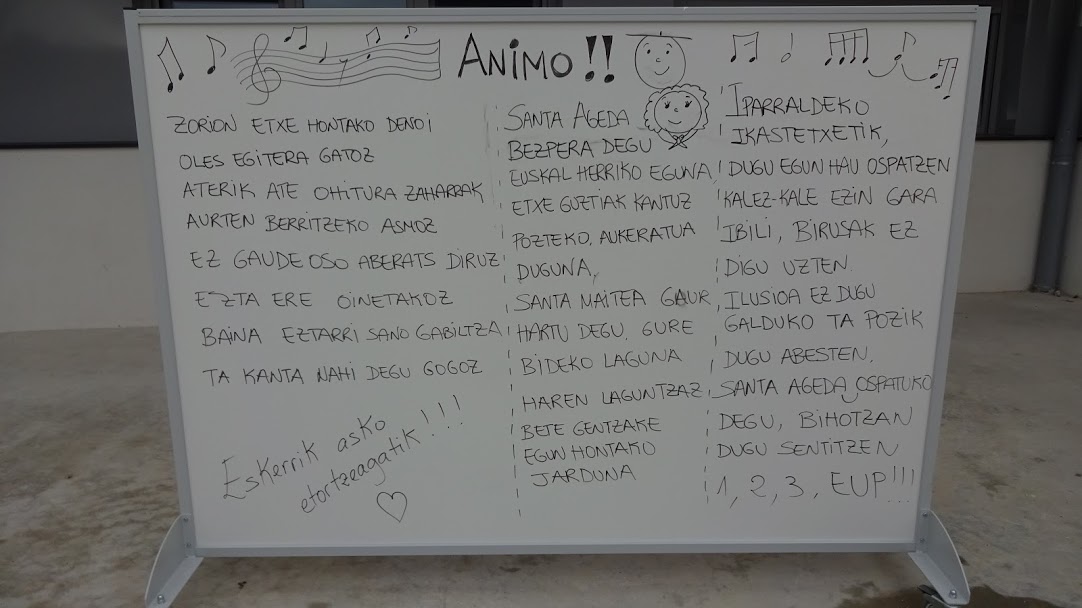 ANIMO!!
ZORION ETXE HONTAKO DENOI
OLES EGITERA GATOZ
ATERIK ATE OHITURA ZAHARRAK
AURTEN BERRITZEKO ASMOZ
EZ GAUDE OSO ABERATS DIRUZ
EZTA ERE OINETAKOZ
BAINA EZTARRI SANO GABILTZA
TA KANTA NAHI DEGU GOGOZ
Eskerrik asko
etortzeagatik!!!
SANTA AGEDA
BEZPERA DEGU
EUSKAL HERRIKO EGUNA,
ETXE GUZTIAK KANTUZ
POZTEKO, AUKERATUA
DUGUNA,
SANTA MAITEA GAUR,
HARTU DEGU, GURE
BIDEKO LAGUNA
HAREN LAGUNTZAZ
BETE GENTZAKE
EGUN HONTAKO
JARDUNA
IPARRALDEKO
IKASTETXETIK,
DUGU EGUN HAU OSPATZEN
KALEZ-KALE EZIN GARA
IBILI, BIRUSAK EZ
DIGU UZTEN.
ILUSIOA EZ DUGU
GALDUKO TA POZIK
DUGU ABESTEN,
SANTA AGEDA OSPATUKO
DEGU, BIHOTZAN
DUGU SENTITZEN
1, 2, 3, EUP!!!